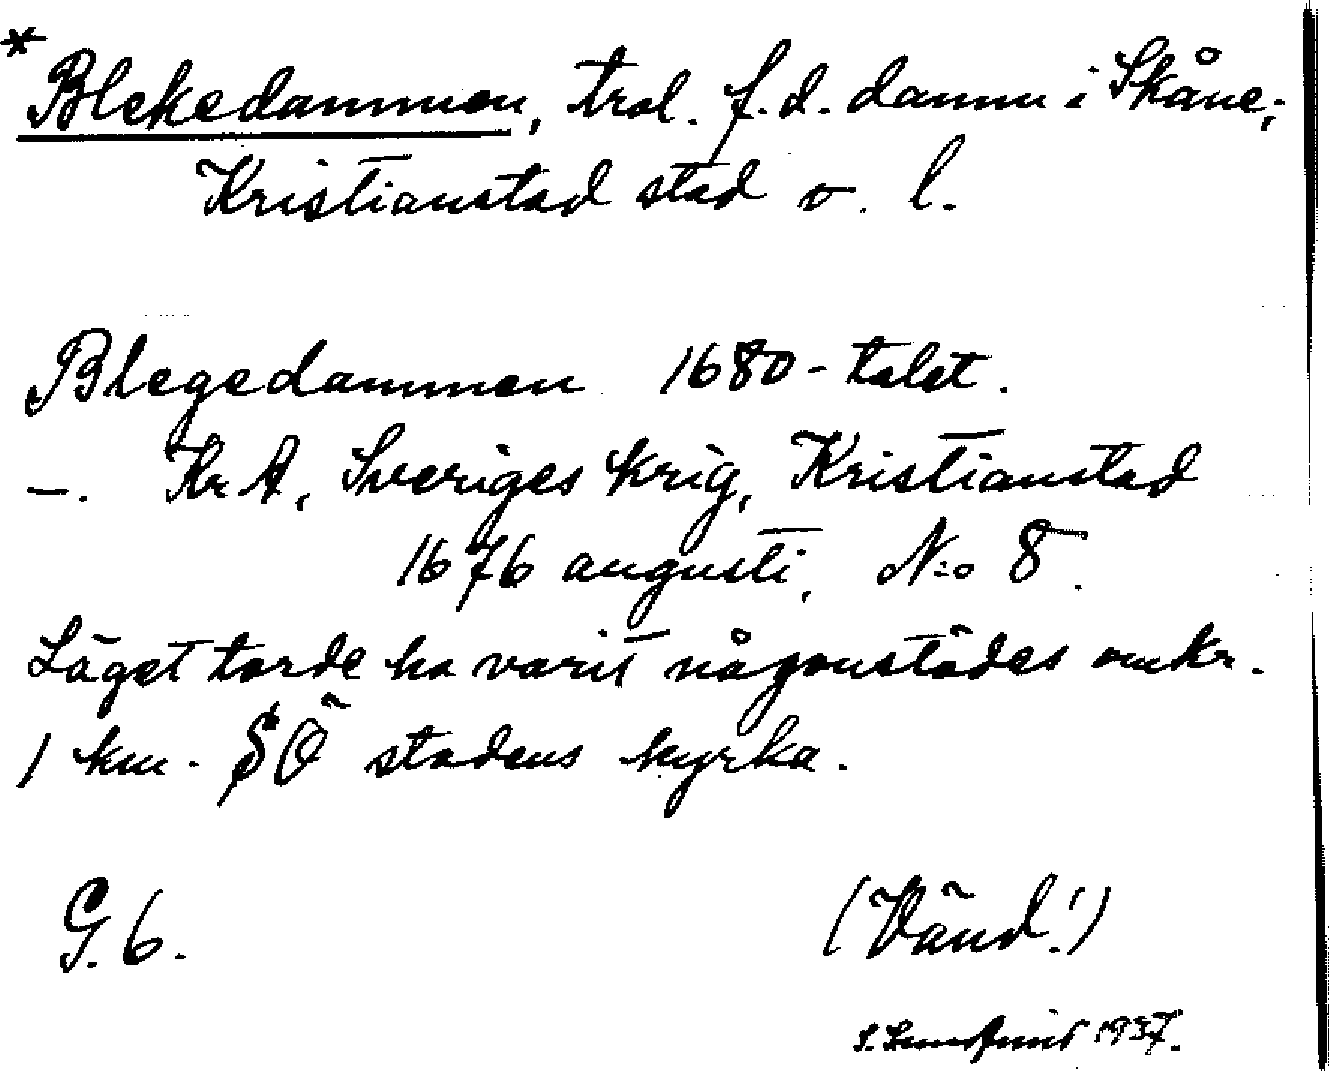 * Blekedammen, trol. f.d. damm i Skåne;
Kristianstad stad o. l.
Blegedammen 1680-talet.
–. KrA, Sveriges krig, Kristianstad
1676 augusti, N:o 8.
Läget torde ha varit någonstädes omkr.
1 km. SÖ stadens kyrka.
G. 6.
(Vänd!)
S. 1937.